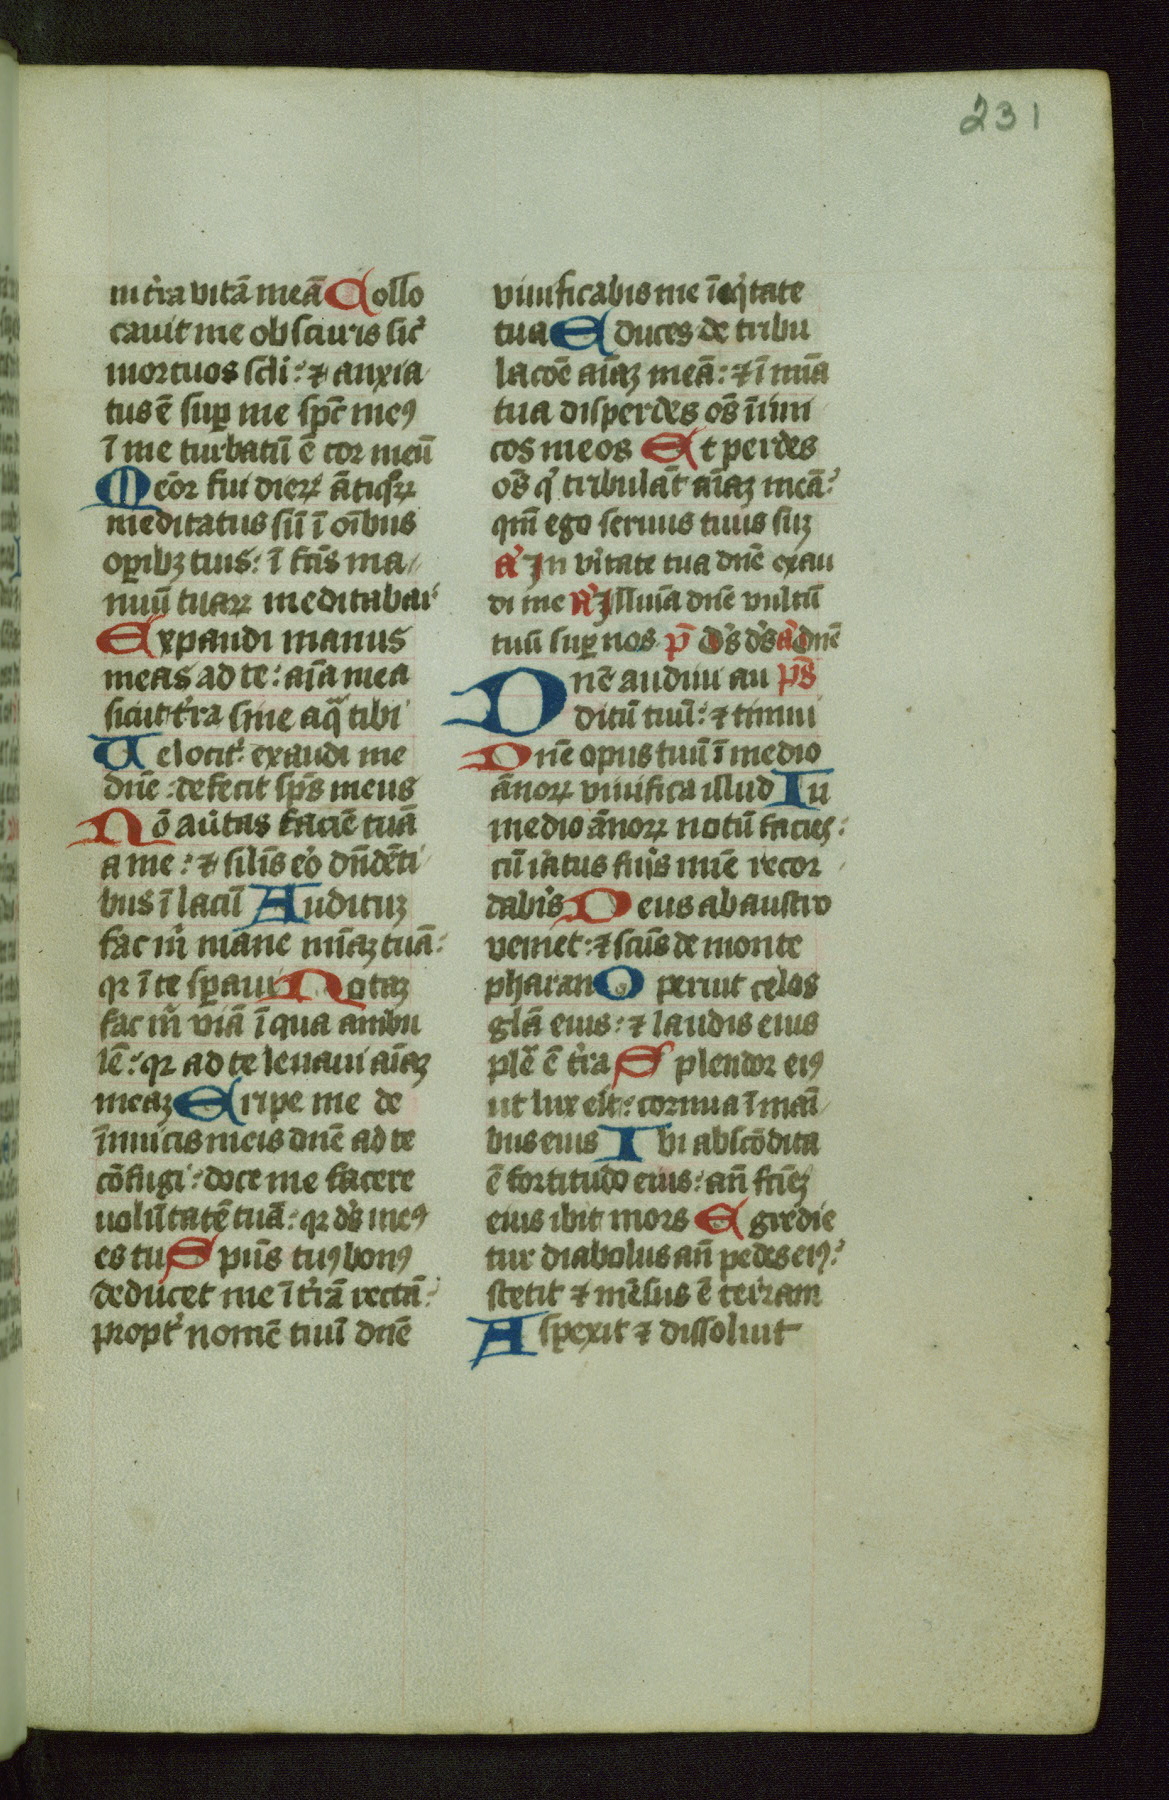 231
in tr̄a vitā meā Collo
cauit me obscuris sic̄
mortuos sc̄li: ⁊ anxia
tus ē sup̱ me sp̄c meꝰ
ī me turbatū ē cor meū
Meōr fui dieꝝ ātiq̄ꝝ
meditatus sū ī oībus
op̱ibꝫ tuis: ī fc̄is ma
nuū tuaꝝ meditabar
Expandi manus
meas ad te: aīa mea
sicut tr̄a sine aq̄ tibi
Velocit̄ exaudi me
dn̄e: defecit sp̄s meus
Nō aūtas faciē tuā
a me: ⁊ silīs ēo dn̄dēti
bus ī lacū Audituꝫ
fac m̄ mane mīaꝫ tuā:
qꝛ ī te sp̱aui Notaꝫ
fac m̄ viā ī qua ambu
lē: qꝛ ad te leuaui aīaꝫ
meaꝫ Eripe me de
īnimicis meis dn̄e ad te
cōfugi: doce me facere
uolūtatē tuā: qꝛ ds̄ meꝰ
es tu Spiūs tuꝰ bonꝰ
deducet me ī tr̄ā rectā:
propt̄ nomē tuū dn̄e
viuificabis me ī eq̄tate
tua Educes de tribu
lacōe aīaꝫ meā: ⁊ ī mīa
tua disperdes os̄ īimi
cos meos Et perdes
os̄ q̄ tribulāt aīaꝫ meā:
qm̄ ego seruus tuus suꝫ
a̾ In vītate tua dn̄e exau
di me A̾ Illuīa dn̄e vultū
tuū sup̱ nos p̄ Ds̄ ds̄ a̾ Dnē
Dn̄e audiui au p̄s
ditū tuū: ⁊ timui
Dn̄e opus tuū ī medio
ānoꝝ viuifica illud In
medio ānoꝝ notū facies:
cū ir̄atus fuīs mīe recor
dabīs Deus ab austro
veniet: ⁊ sc̄us de monte
pharan Operuit cęlos
glā eius: ⁊ laudis eius
plē ē tr̄a Splendor eiꝰ
ut lux erit: cornua ī māi
bus eius Ibi abscōdita
ē fortitudo eius: an̄ fc̄ieꝫ
eius ibit mors Egredie
tur diabolus an̄ pedes eiꝰ:
stetit ⁊ mēsus ē terram
Aspexit ⁊ dissoluit